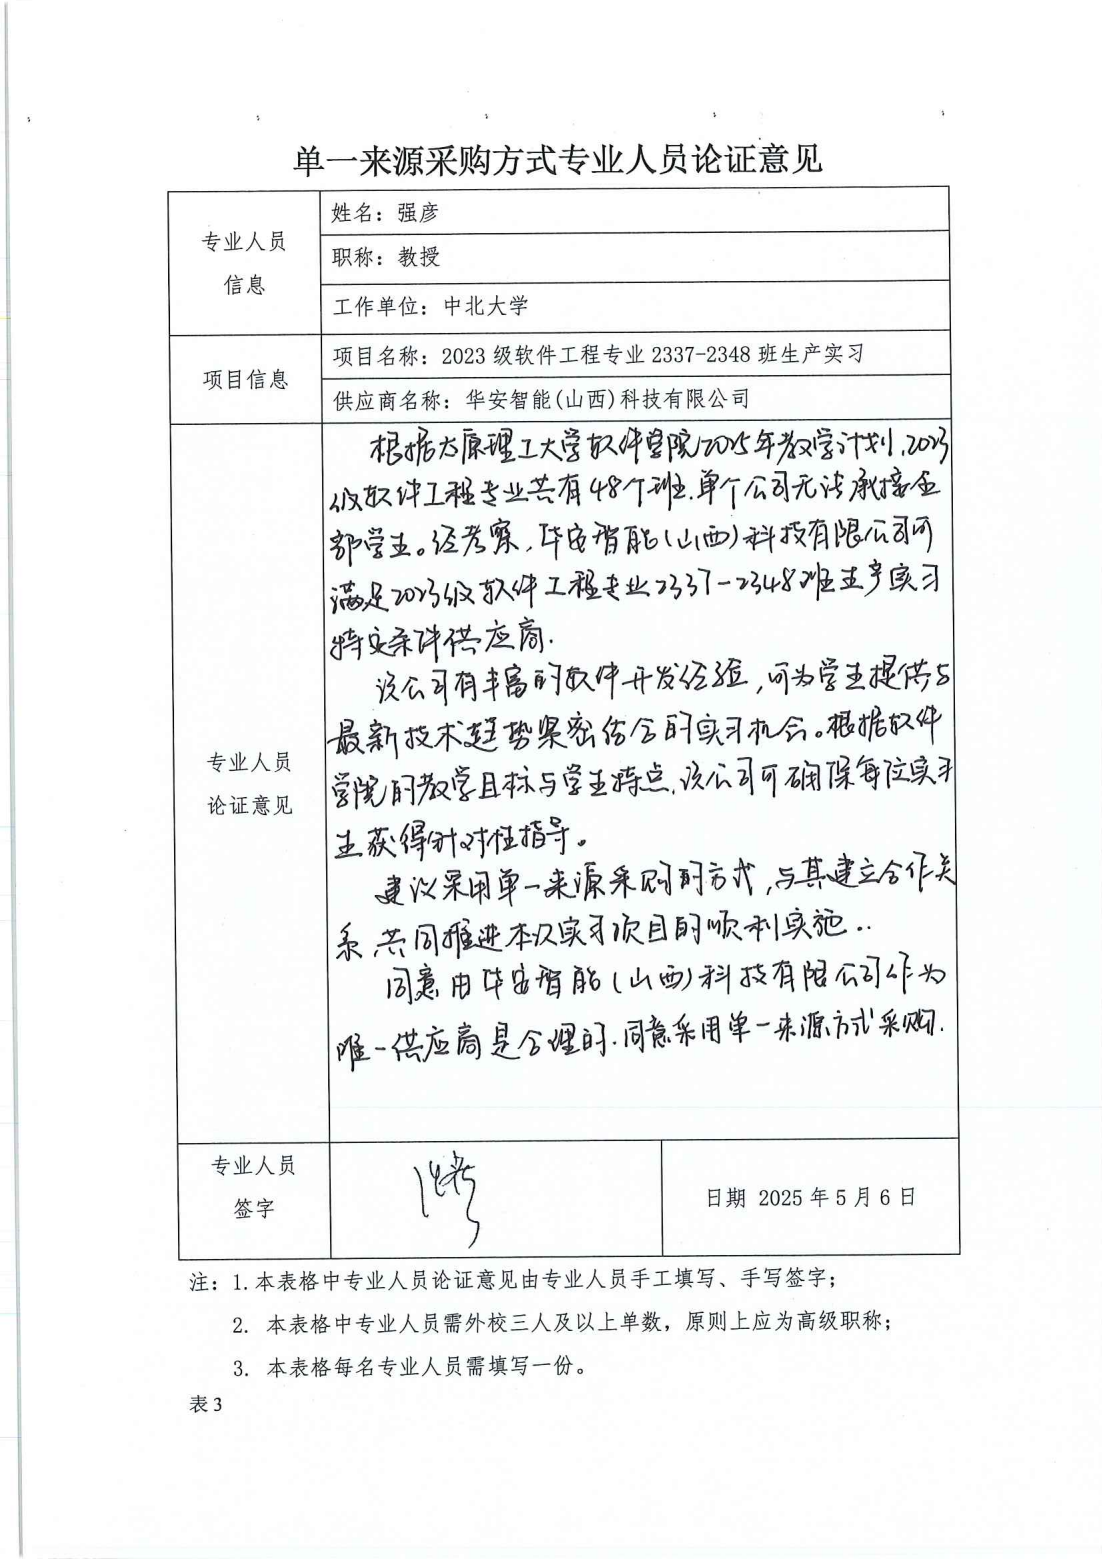 单一来源采购方式专业人员论证意见
专业人员
信息
姓名：强彦
职称：教授
工作单位：中北大学
项目信息
项目名称：2023级软件工程专业2337-2348班生产实习
供应商名称：华安智能(山西)科技有限公司
专业人员
论证意见
根据太原理工大学软件学院2025年教学计划,2023
级软件工程专业共有48个班.单个公司无法承接全
部学生。经考察,华安智能(山西)科技有限公司可
满足2023级软件工程专业2337-2348班生产实习
特定条件供应商.
该公司有丰富的软件开发经验,可为学生提供与
最新技术趋势紧密结合的实习机会。根据软件
学院的教学目标与学生特点,该公司可确保每位实习
生获得针对性指导。
建议采用单一来源采购的方式,与其建立合作关
系,共同推进本次实习项目的顺利实施..
同意由华安智能(山西)科技有限公司作为
唯一供应商是合理的.同意采用单一来源方式采购.
专业人员
签字
日期 2025年5月6日
注：1.本表格中专业人员论证意见由专业人员手工填写、手写签字；
2. 本表格中专业人员需外校三人及以上单数，原则上应为高级职称；
3. 本表格每名专业人员需填写一份。
表3